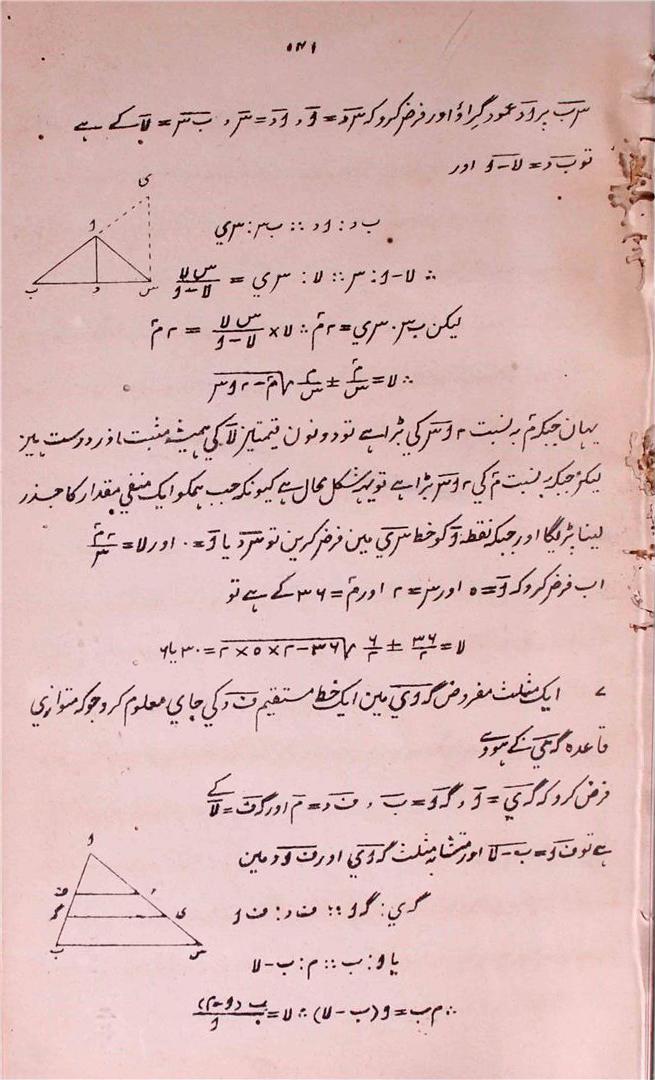 س ب پر و د عمود گراؤ اور فرض کرو کہ س د = و , و د = س , ب س = لا کے ہے
تو ب د = لا - و اور
ب د : و د :: ب س : س ي
∴ لا - و : س :: لا : س ي = س لا / لا - و
لیکن ب س . س ي = ۲ م٢ ∴ لا × س لا / لا - و = ۲ م٢
∴ لا = م٢ / س ± م / س √ م٢ - ۲ و س
یہان جبکہ م٢ بہ نسبت ۲ و س کی بڑا ہے تو دونون قیمتین لا کی ہمیشہ مثبت اور درست ہین
لیکن جبکہ بہ نسبت م٢ کی ۲ و س بڑا ہے تو یہہ شکل محال ہے کیونکہ جب ہمکو ایک منفي مقدار کا جذر
لینا پڑیگا اور جبکہ نقطہ و کو خط س ي مین فرض کرین تو س د یا و = ۰ اور لا = ۲ م٢ / س
اب فرض کرو کہ و = ۵ اور س = ۲ اور م٢ = ۳۶ کے ہے تو
لا = ۳۶ / ۲ ± ۶ / ۲ √ ۳۶ - ۲ × ۵ × ۲ = ۳۰ یا ۶
۷ ایک مثلث مفروض گ و ي مین ایک خط مستقیم ف د کي جاي معلوم کرو جو کہ متوازي
قاعدہ گ ي کے ہووے
فرض کرو کہ گ ي = و , گ و = ب , ف د = م اور گ ف = لا کے
ہے تو ف و = ب - لا اور متشابہ مثلث گ و ي اور ف و د مین
گ ي : گ و :: ف د : ف و
یا و : ب :: م : ب - لا
∴ م ب = و (ب - لا) ∴ لا = ب (و - م) / و